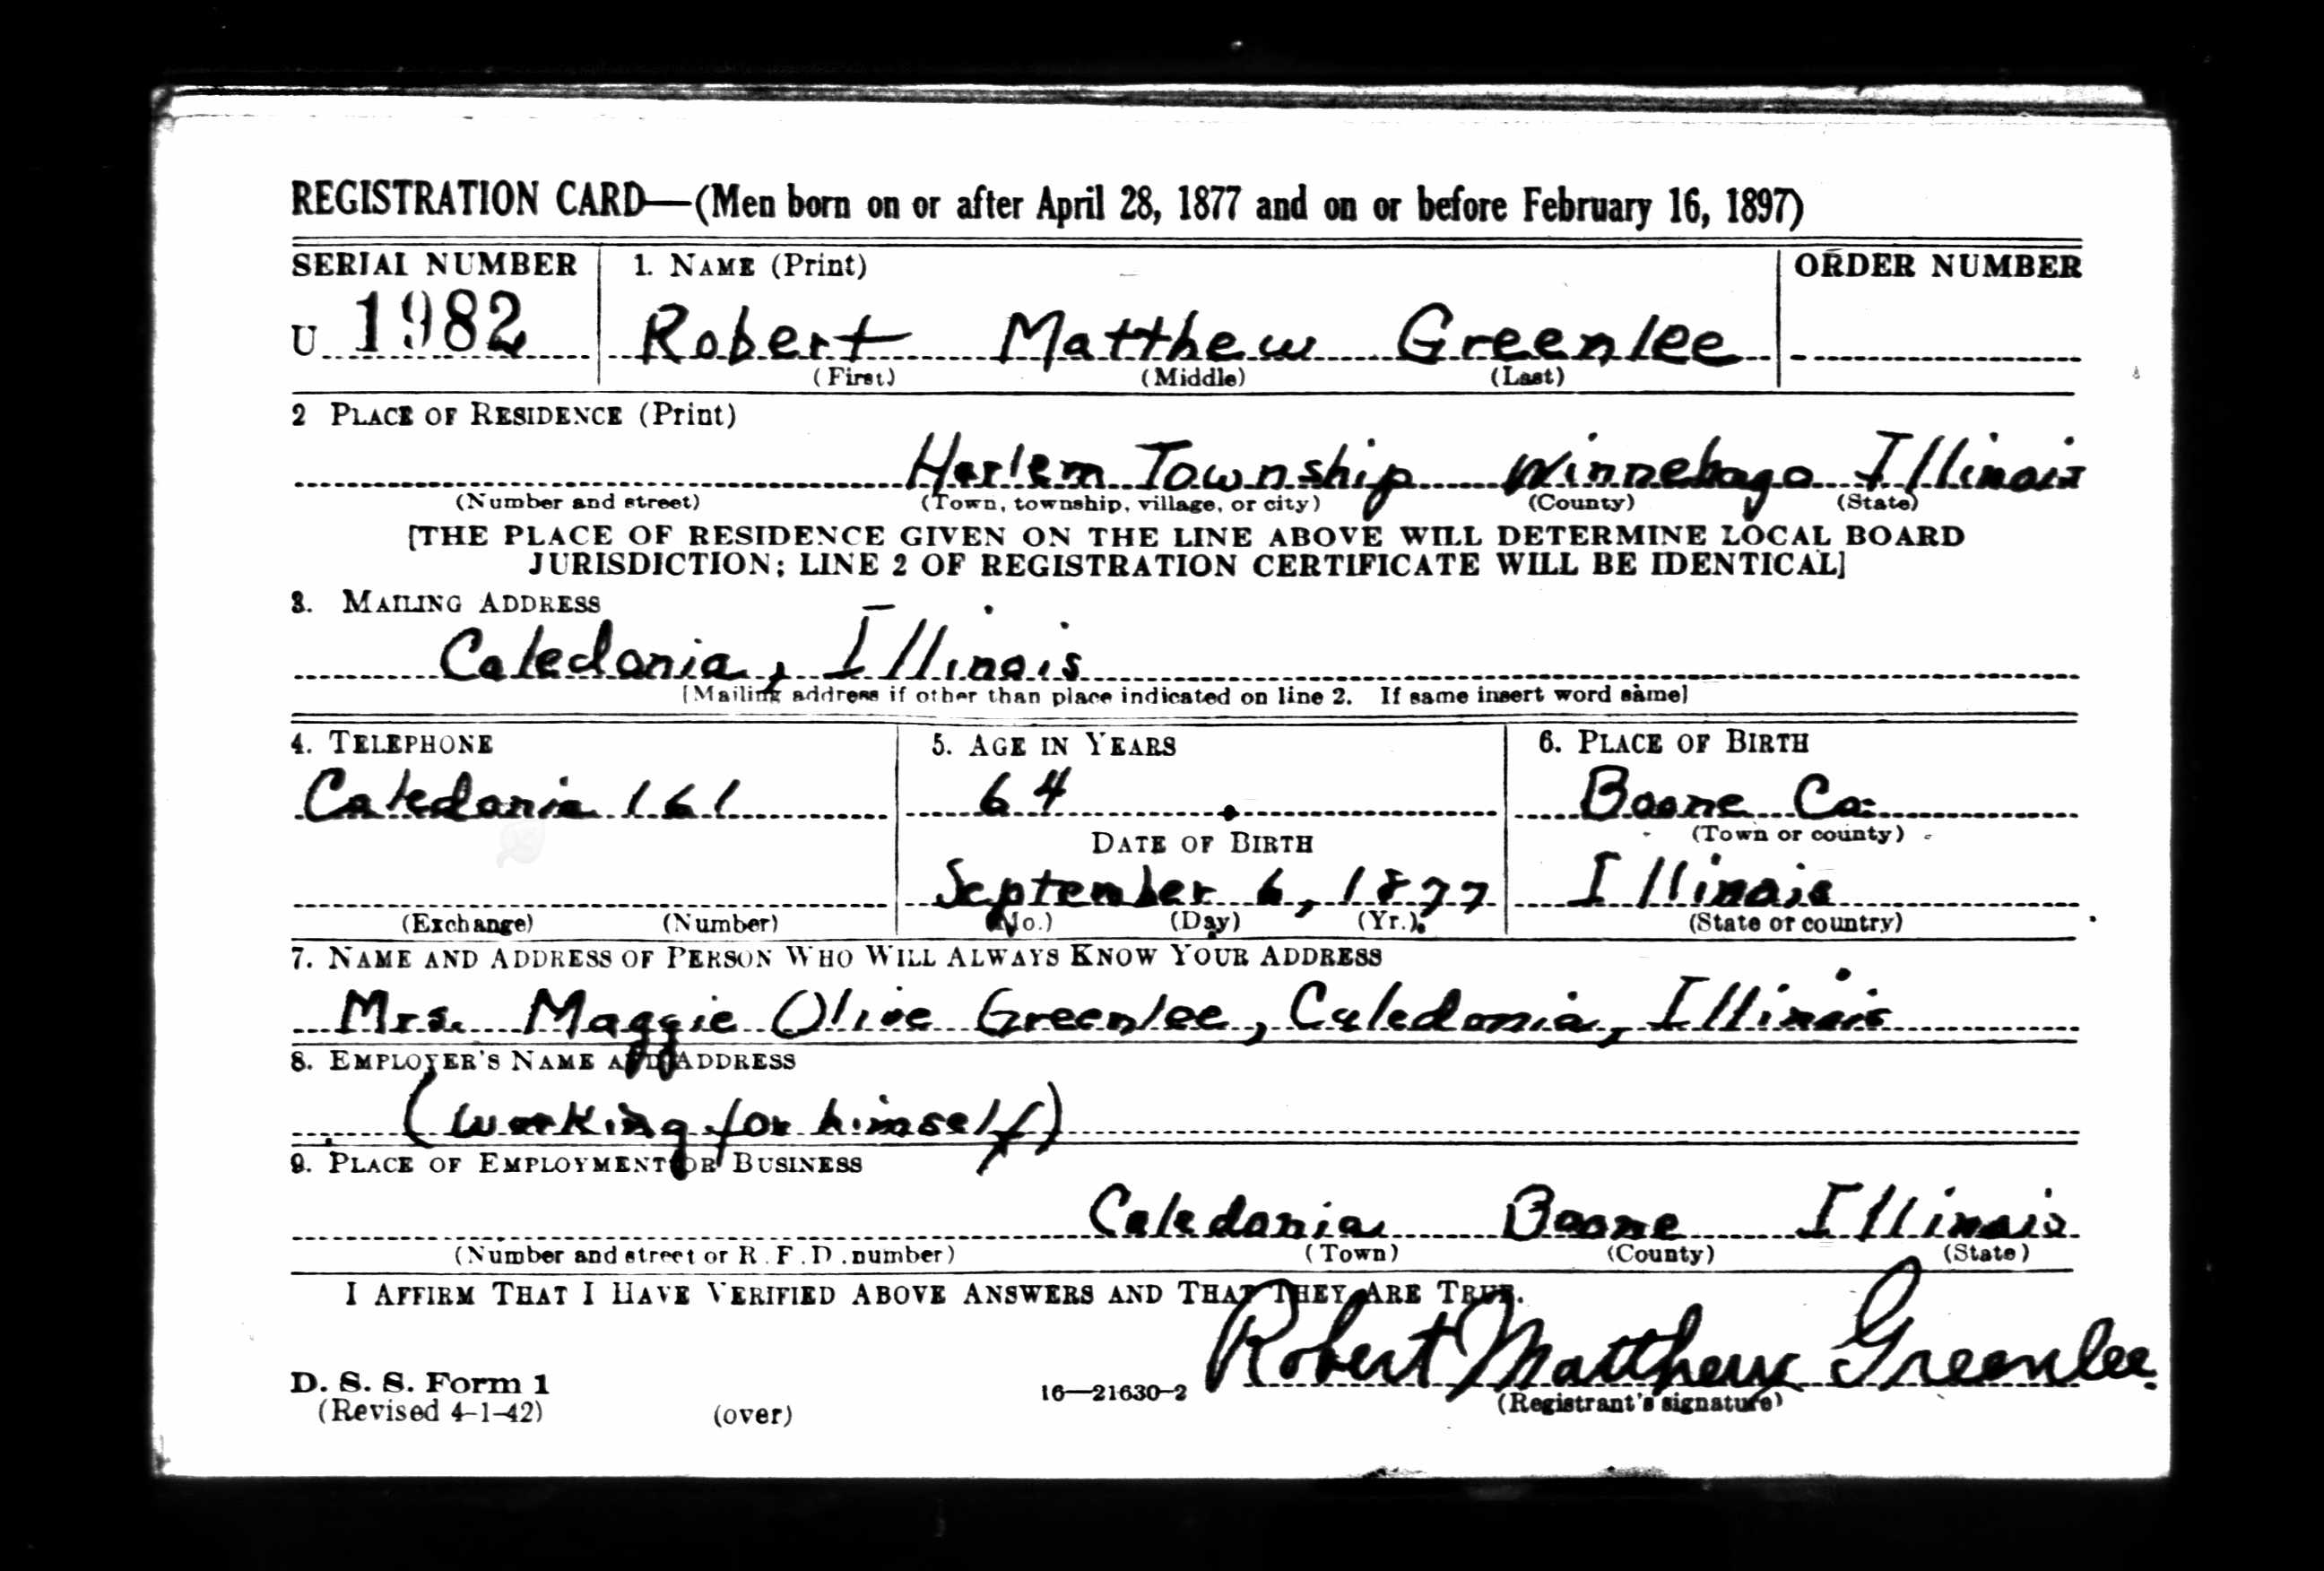 REGISTRATION CARD—(Men born on or after April 28, 1877 and on or before February 16, 1897)
SERIAL NUMBER 1. NAME (Print) ORDER NUMBER
U 1982 Robert Matthew Greenlee
(First) (Middle) (Last)
2 PLACE OF RESIDENCE (Print)
Harlem Township Winnebago Illinois
(Number and street) (Town, township, village, or city) (County) (State)
[THE PLACE OF RESIDENCE GIVEN ON THE LINE ABOVE WILL DETERMINE LOCAL BOARD
JURISDICTION; LINE 2 OF REGISTRATION CERTIFICATE WILL BE IDENTICAL]
3. MAILING ADDRESS
Caledonia, Illinois
[Mailing address if other than place indicated on line 2. If same insert word same]
4. TELEPHONE 5. AGE IN YEARS 6. PLACE OF BIRTH
Caledonia 161 64 Boone Co.
DATE OF BIRTH (Town or county)
September 6, 1877 Illinois
(Exchange) (Number) (Mo.) (Day) (Yr.) (State or country)
7. NAME AND ADDRESS OF PERSON WHO WILL ALWAYS KNOW YOUR ADDRESS
Mrs. Maggie Olive Greenlee, Caledonia, Illinois
8. EMPLOYER'S NAME AND ADDRESS
(working for himself)
9. PLACE OF EMPLOYMENT OR BUSINESS
Caledonia Boone Illinois
(Number and street or R. F. D. number) (Town) (County) (State)
I AFFIRM THAT I HAVE VERIFIED ABOVE ANSWERS AND THAT THEY ARE TRUE.
Robert Matthew Greenlee
D. S. S. Form 1
(Revised 4-1-42) (over) 16—21630-2 (Registrant's signature)